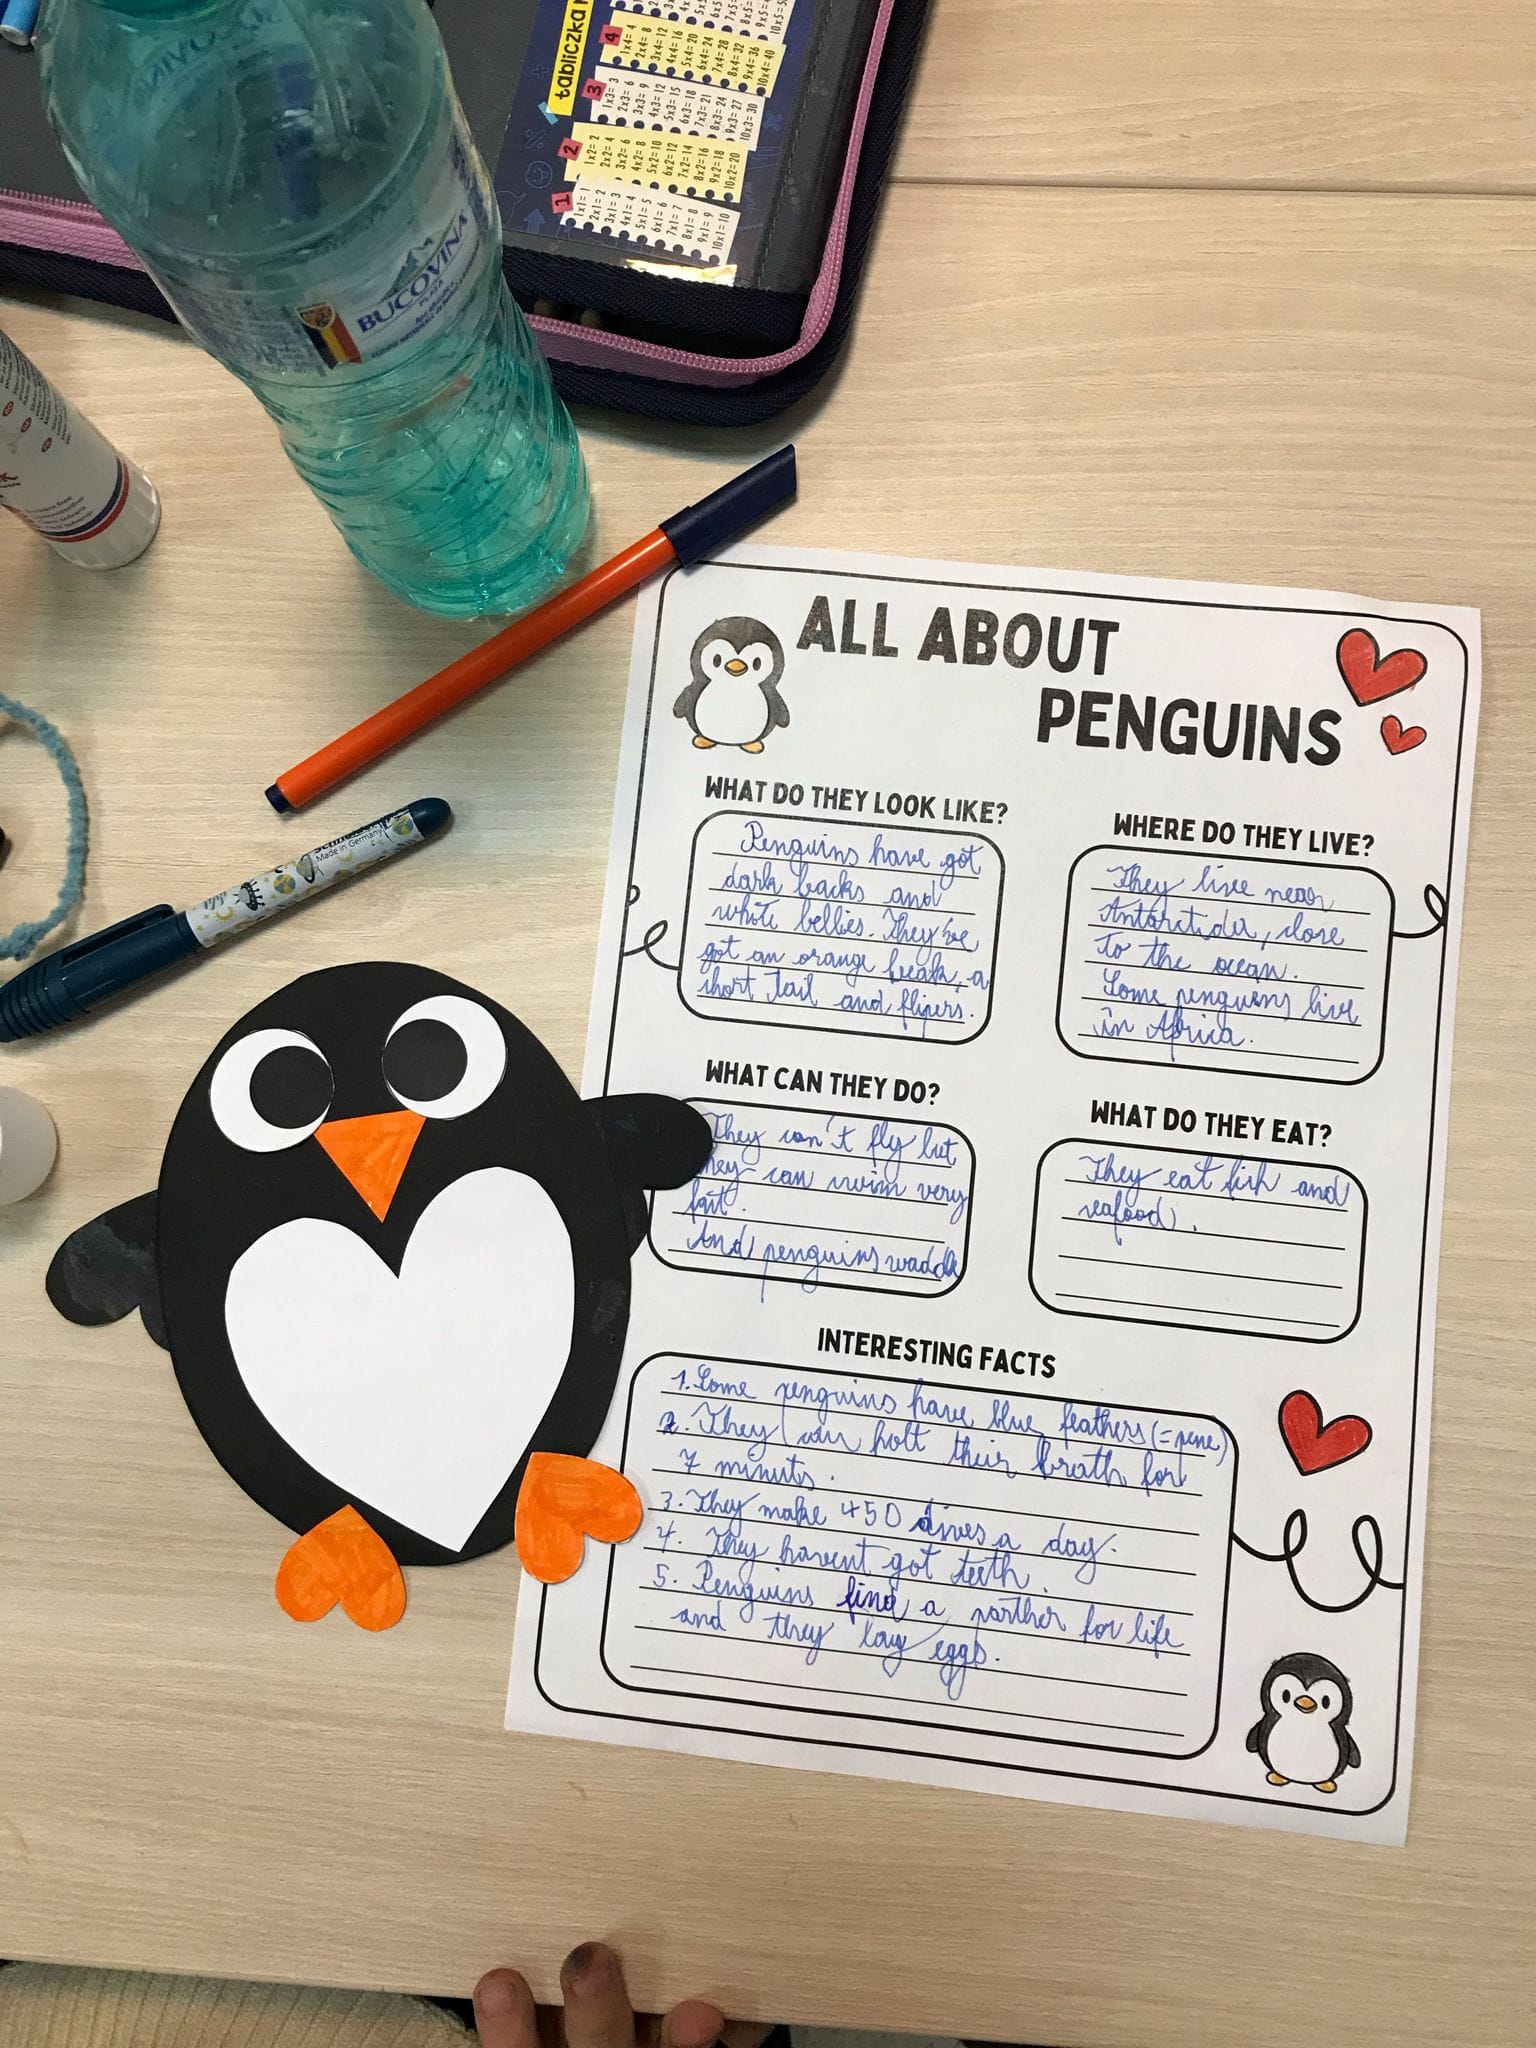 tabliczka
4
1x4=4
2x4=8
3x4=12
4x4=16
5x4=20
6x4=24
7x4=28
8x4=32
9x4=36
10x4=40
3
1x3=3
2x3=6
3x3=9
4x3=12
5x3=15
6x3=18
7x3=21
8x3=24
9x3=27
10x3=30
2
1x2=2
2x2=4
3x2=6
4x2=8
5x2=10
6x2=12
7x2=14
8x2=16
9x2=18
10x2=20
1
1x1=1
2x1=2
3x1=3
4x1=4
5x1=5
6x1=6
7x1=7
8x1=8
9x1=9
10x1=10
BUCOVINA
Made in Germany
ALL ABOUT
PENGUINS
WHAT DO THEY LOOK LIKE?
Penguins have got
dark backs and
white bellies. They've
got an orange beak, a
short tail and flipers.
WHERE DO THEY LIVE?
They live near
close
to the ocean.
Some penguins live
in Africa.
WHAT CAN THEY DO?
They can't fly but
they can swim very
fast.
And penguins waddle
WHAT DO THEY EAT?
They eat fish and
seafood.
INTERESTING FACTS
1. Some penguins have blue feathers (=pene)
2. They can holt their breath for
7 minuts.
3. They make 450 dives a day.
4. They havent got teeth.
5. Penguins find a parther for life
and they lay eggs.